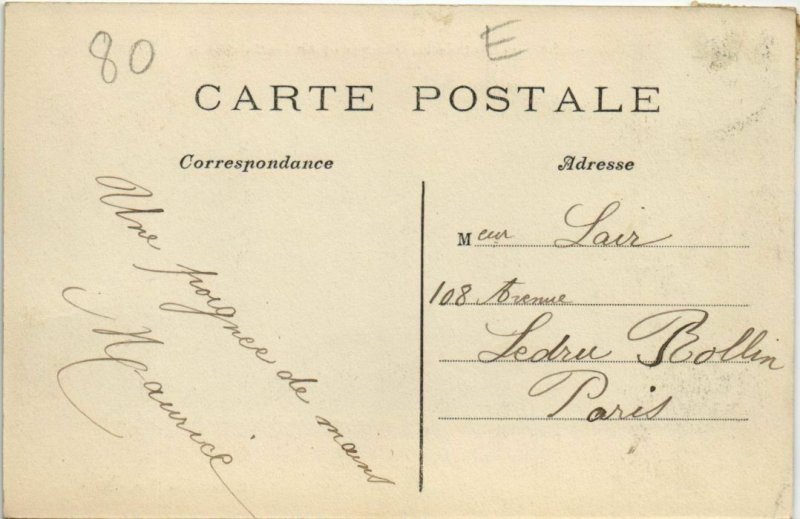 80
E
CARTE POSTALE
Correspondance
Adresse
Une poignée de mains
Maurice
Meur Lair
108 Avenue
Ledru Rollin
Paris